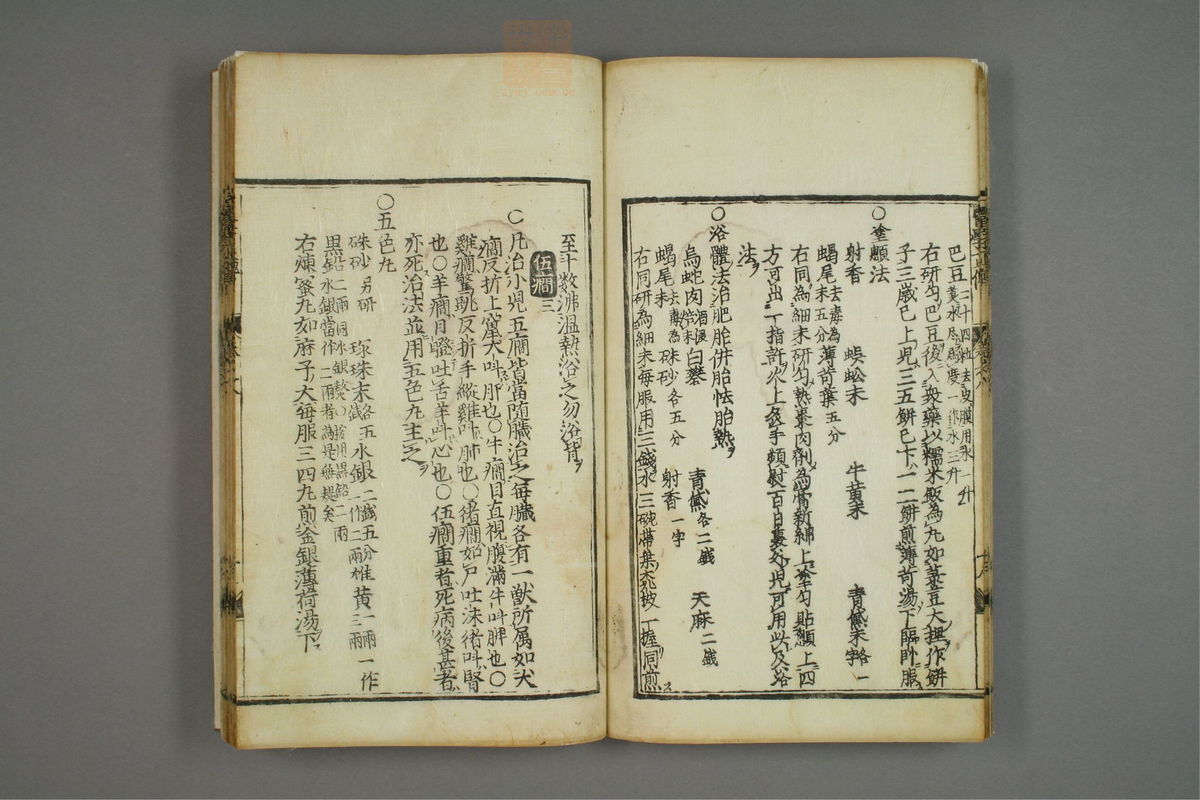 巴豆二十四粒去皮膜用水一升
煮水尽為度一作水三升
右研勻巴豆後入衆藥以糯米飯為丸如菉豆大捏作餅
子三歲已上児三五餅已下一二餅煎薄苛湯下臨卧服
○塗顖法
射香 蜈蚣末 牛黄末 青黛末各一字
蝎尾末去毒為五分 薄苛葉五分
右同為細末研勻熟棗肉劑為膏新綿上塗勻貼顖上四
方可出一丁指許火上炙手頻熨百日裏外児可用以及浴
法
○浴體法治肥胎併胎怯胎熱
烏蛇肉酒浸焙末 白礬 青黛各二錢 天麻二錢
蝎尾末去毒為 硃砂各五分 射香一字
右同研為細末每服用三錢水三碗帯葉桃枝一握同煎
至十数沸溫熱浴之勿浴背
伍癇三
○凡治小児五癇皆當随臟治之每臟各有一獣所属如犬
癇反折上竄犬呌肝也○牛癇目直視腹滿牛呌脾也○
雞癇驚跳反折手縱雞呌肺也○猪癇如尸吐沫猪呌腎
也○羊癇目瞪吐舌羊呌心也○伍癇重者死病後甚者
亦死治法並用五色丸主之
○五色丸
硃砂另研 珎珠末各五錢 水銀二錢五分一作二兩 雄黄一兩一作三兩
黒鉛二兩同水銀熬○按用黒鉛二兩
水銀當作一兩者為是無規矣
右煉蜜丸如麻子大每服三四丸煎金銀薄荷湯下